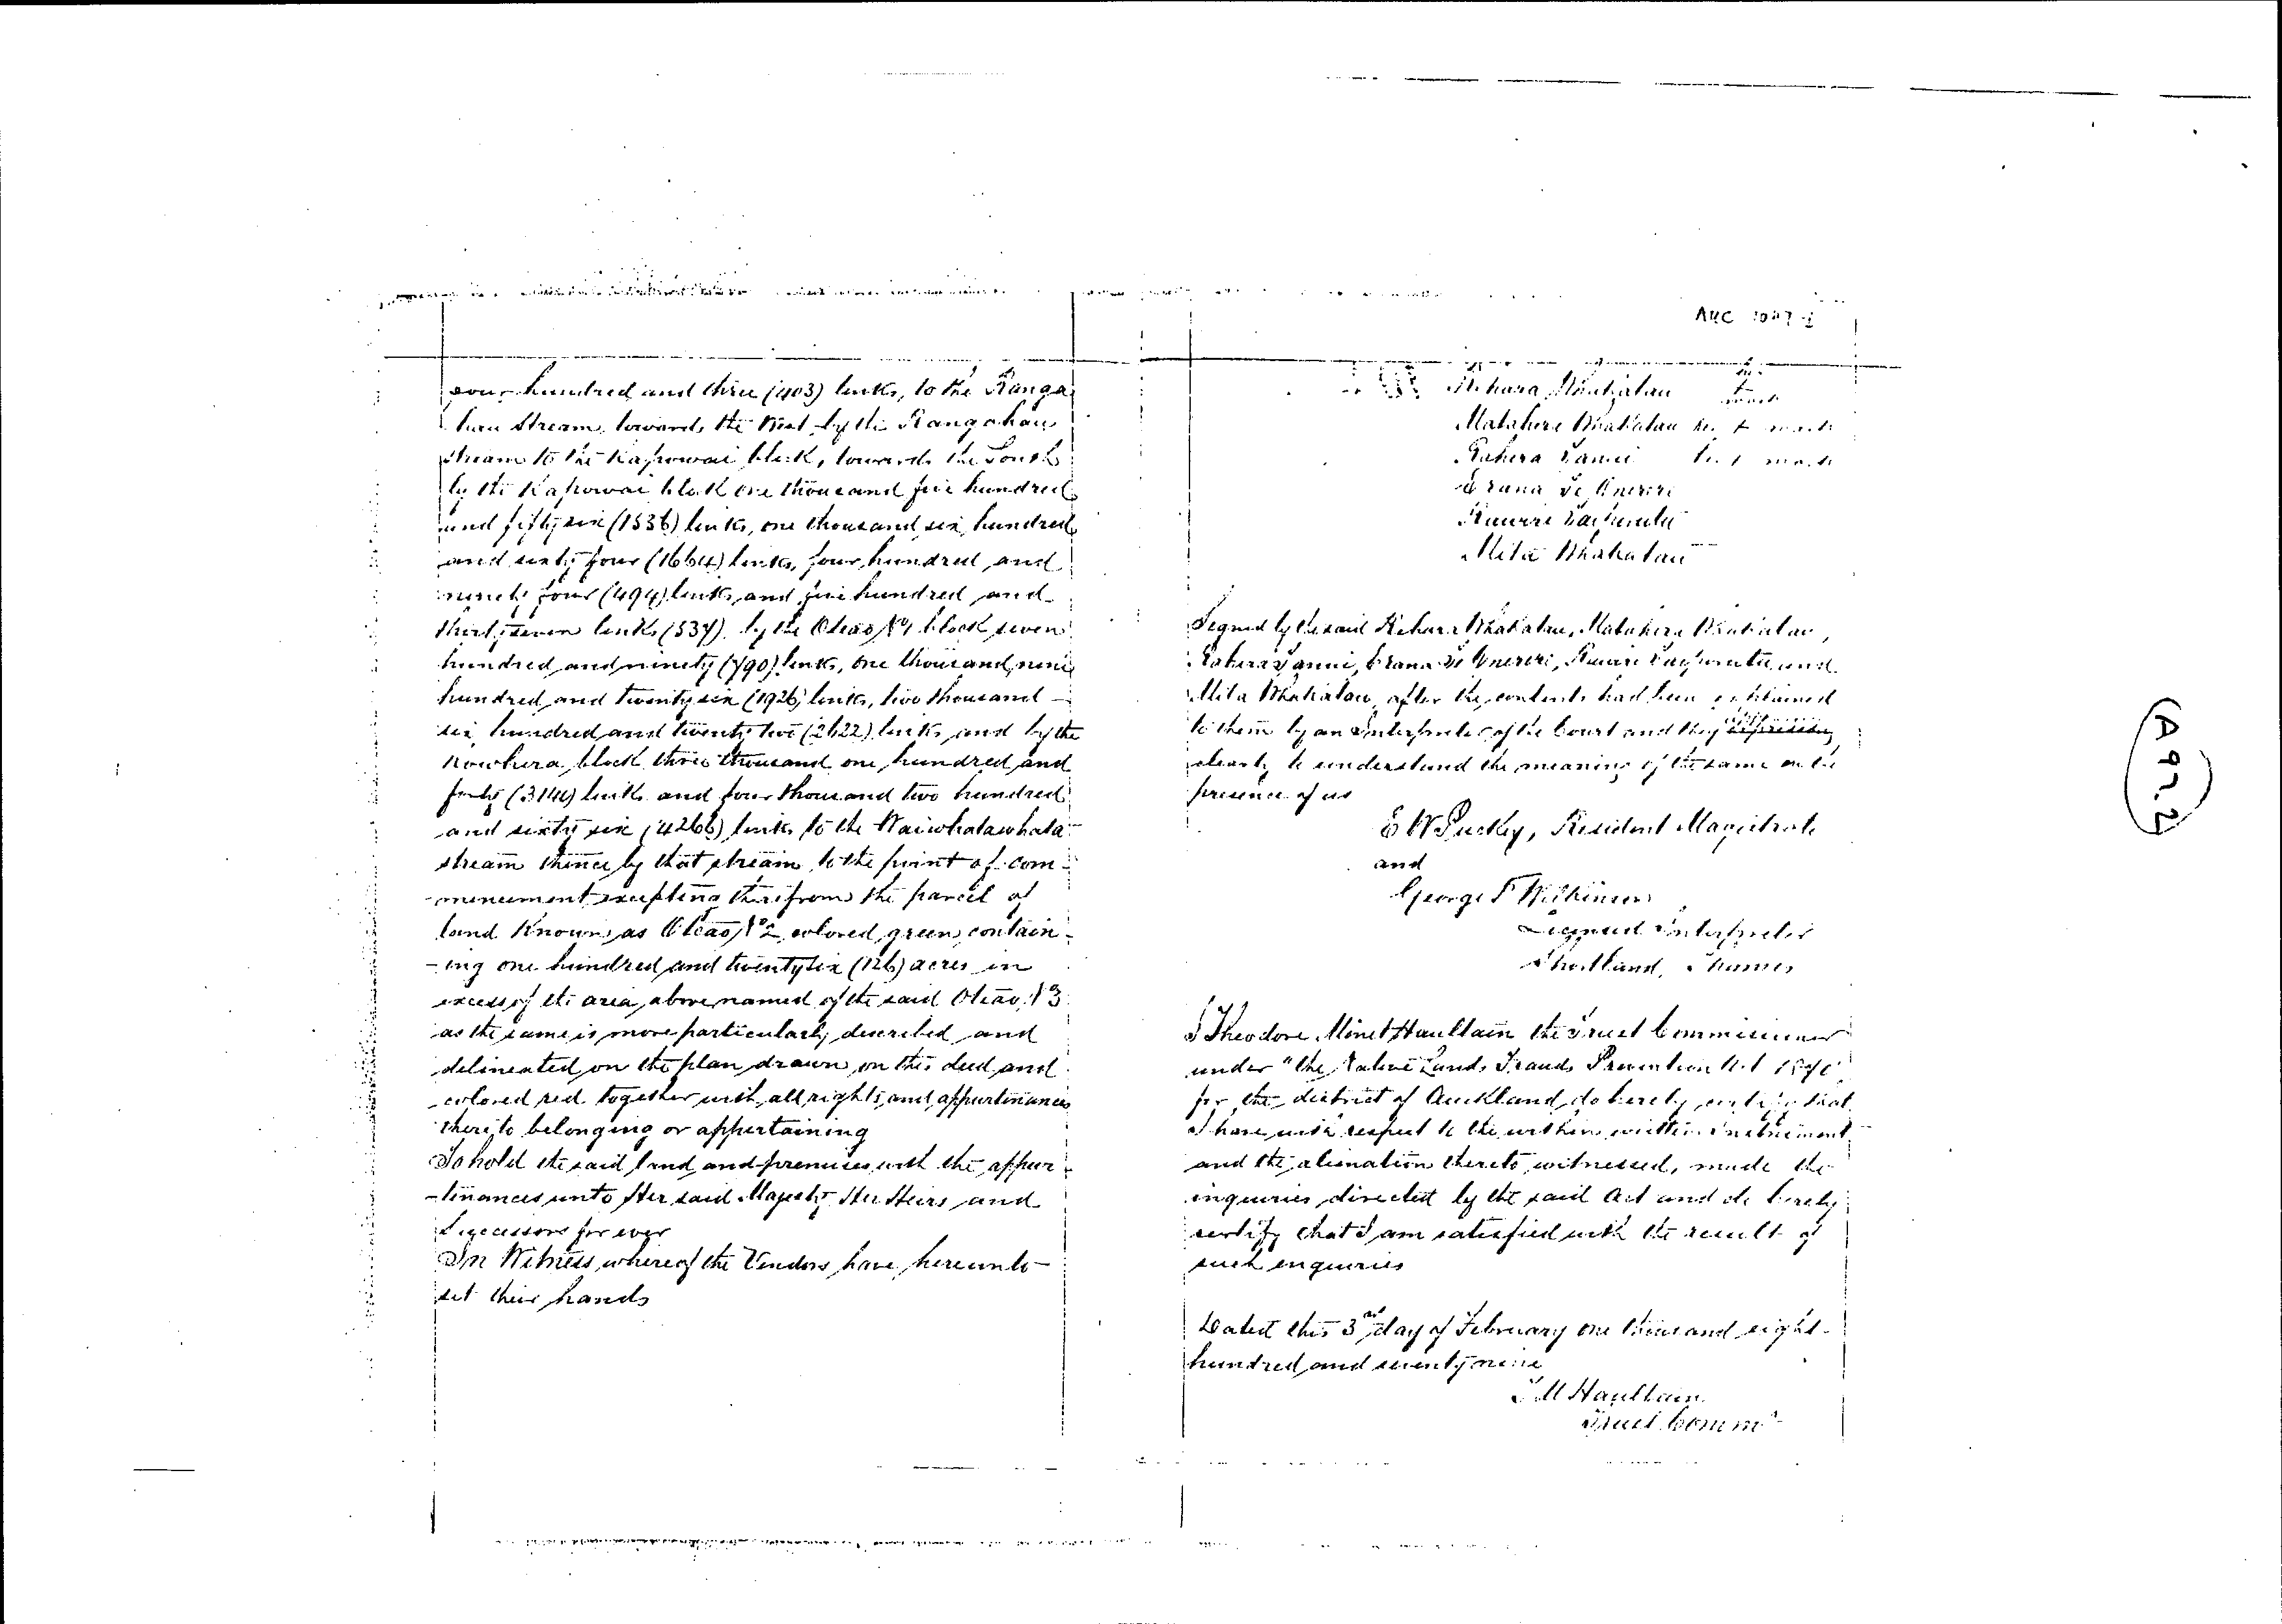 four hundred and three (403) links, to the Ranga
hau Stream, towards the West by the Rangahau
Stream to the Kapowai block, towards the South
by the Kapowai block one thousand five hundred
and fifty six (1556) links, one thousand six hundred
and sixty four (1664) links, four hundred and
ninety four (494) links and five hundred and
thirty seven links (537) by the Otiao No 1 block seven
hundred and ninety (790) links, one thousand nine
hundred and twenty six (1926) links, two thousand
six hundred and twenty two (2622) links and by the
block three thousand one hundred and
forty (3140) links and four thousand two hundred
and sixty six (4266) links to the Waiwhatawhata
stream thence by that stream to the point of com-
-mencement excepting therefrom the parcel of
land known as Otiao No 2 colored green contain-
-ing one hundred and twenty six (126) acres in
excess of the area above named of the said Otiao No 3
as the same is more particularly described and
delineated on the plan drawn on this deed and
colored red together with all rights and appurtenances
thereto belonging or appertaining
To hold the said land and premises with the appur-
-tenances unto Her said Majesty Her Heirs and
Successors for ever
In Witness whereof the Vendors have hereunto
set their hands
Whakatau mark
Matahera Whakatau her x mark
her x mark
Mita Whakatau
Signed by the said Whakatau, Matahera Whakatau,
and
Mita Whakatau after the contents had been explained
to them by an Interpreter of the Court and they
clearly to understand the meaning of the same in the
presence of us
E W Puckey, Resident Magistrate
and
George T Wilkinson
Licensed Interpreter
Shortland, Thames
I Theodore Minet Haultain the Trust Commissioner
under "the Native Lands Frauds Prevention Act 1870"
for the district of Auckland do hereby certify that
I have with respect to the within written Instrument
and the alienation thereto witnessed, made the
inquiries directed by the said Act and do hereby
certify that I am satisfied with the result of
such inquiries
Dated this 3rd day of February one thousand eight
hundred and seventy nine
T M Haultain
Trust Commr